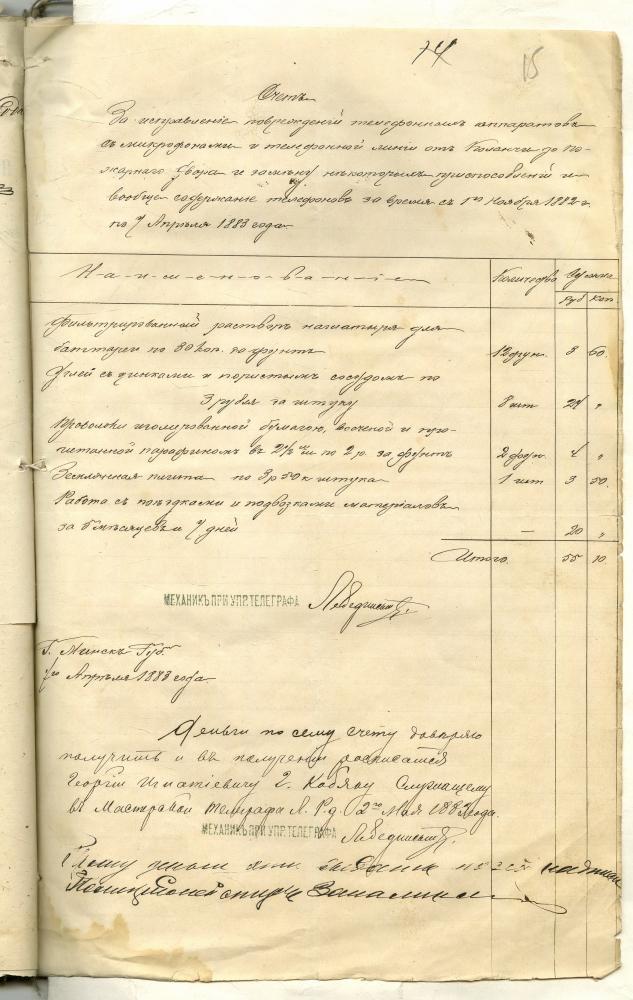 74
15
Счетъ
За исправленіе поврежденій телефонныхъ аппаратовъ
съ микрофонами и телефонной линіи отъ Каланчи до По-
жарнаго Двора и замѣну нѣкоторыхъ приспособленій и
вообще содержаніе телефоновъ за время съ 1го Ноября 1882 г.
по 7 Апрѣля 1883 года.
Н-а-и-м-е-н-о-в-а-н-і-е
Количество
Сумма
Руб Коп.
Фильтрированный растворъ нашатыря для
баттареи по 30 коп. за фунтъ 12 фун. 3 60.
Углей съ цинками и пористымъ сосудомъ по
3 рубля за штуку 8 шт 24 "
Проволоки изолированной бумагою, вощеной и про-
питанной парафиномъ въ по 2 р. за фунтъ 2 фун. 4 "
пчита по 3 р 50 к штука 1 шт 3 50.
Работа съ поѣздками и подвозками матеріаловъ
за 5 мѣсяцевъ и 7 дней — 20 "
Итого. 55 10.
МЕХАНИКЪ ПРИ УПР. ТЕЛЕГРАФА
Г. Минскъ Губ.
7го Апрѣля 1883 года.
Деньги по сему счету довѣряю
получить и въ полученіи росписаться
Георгію Игнатіевичу Г. Кобяку Служащему
въ Мастерской телеграфа Л. Р. д. 2го Мая 1883 года.
МЕХАНИКЪ ПРИ УПР. ТЕЛЕГРАФА